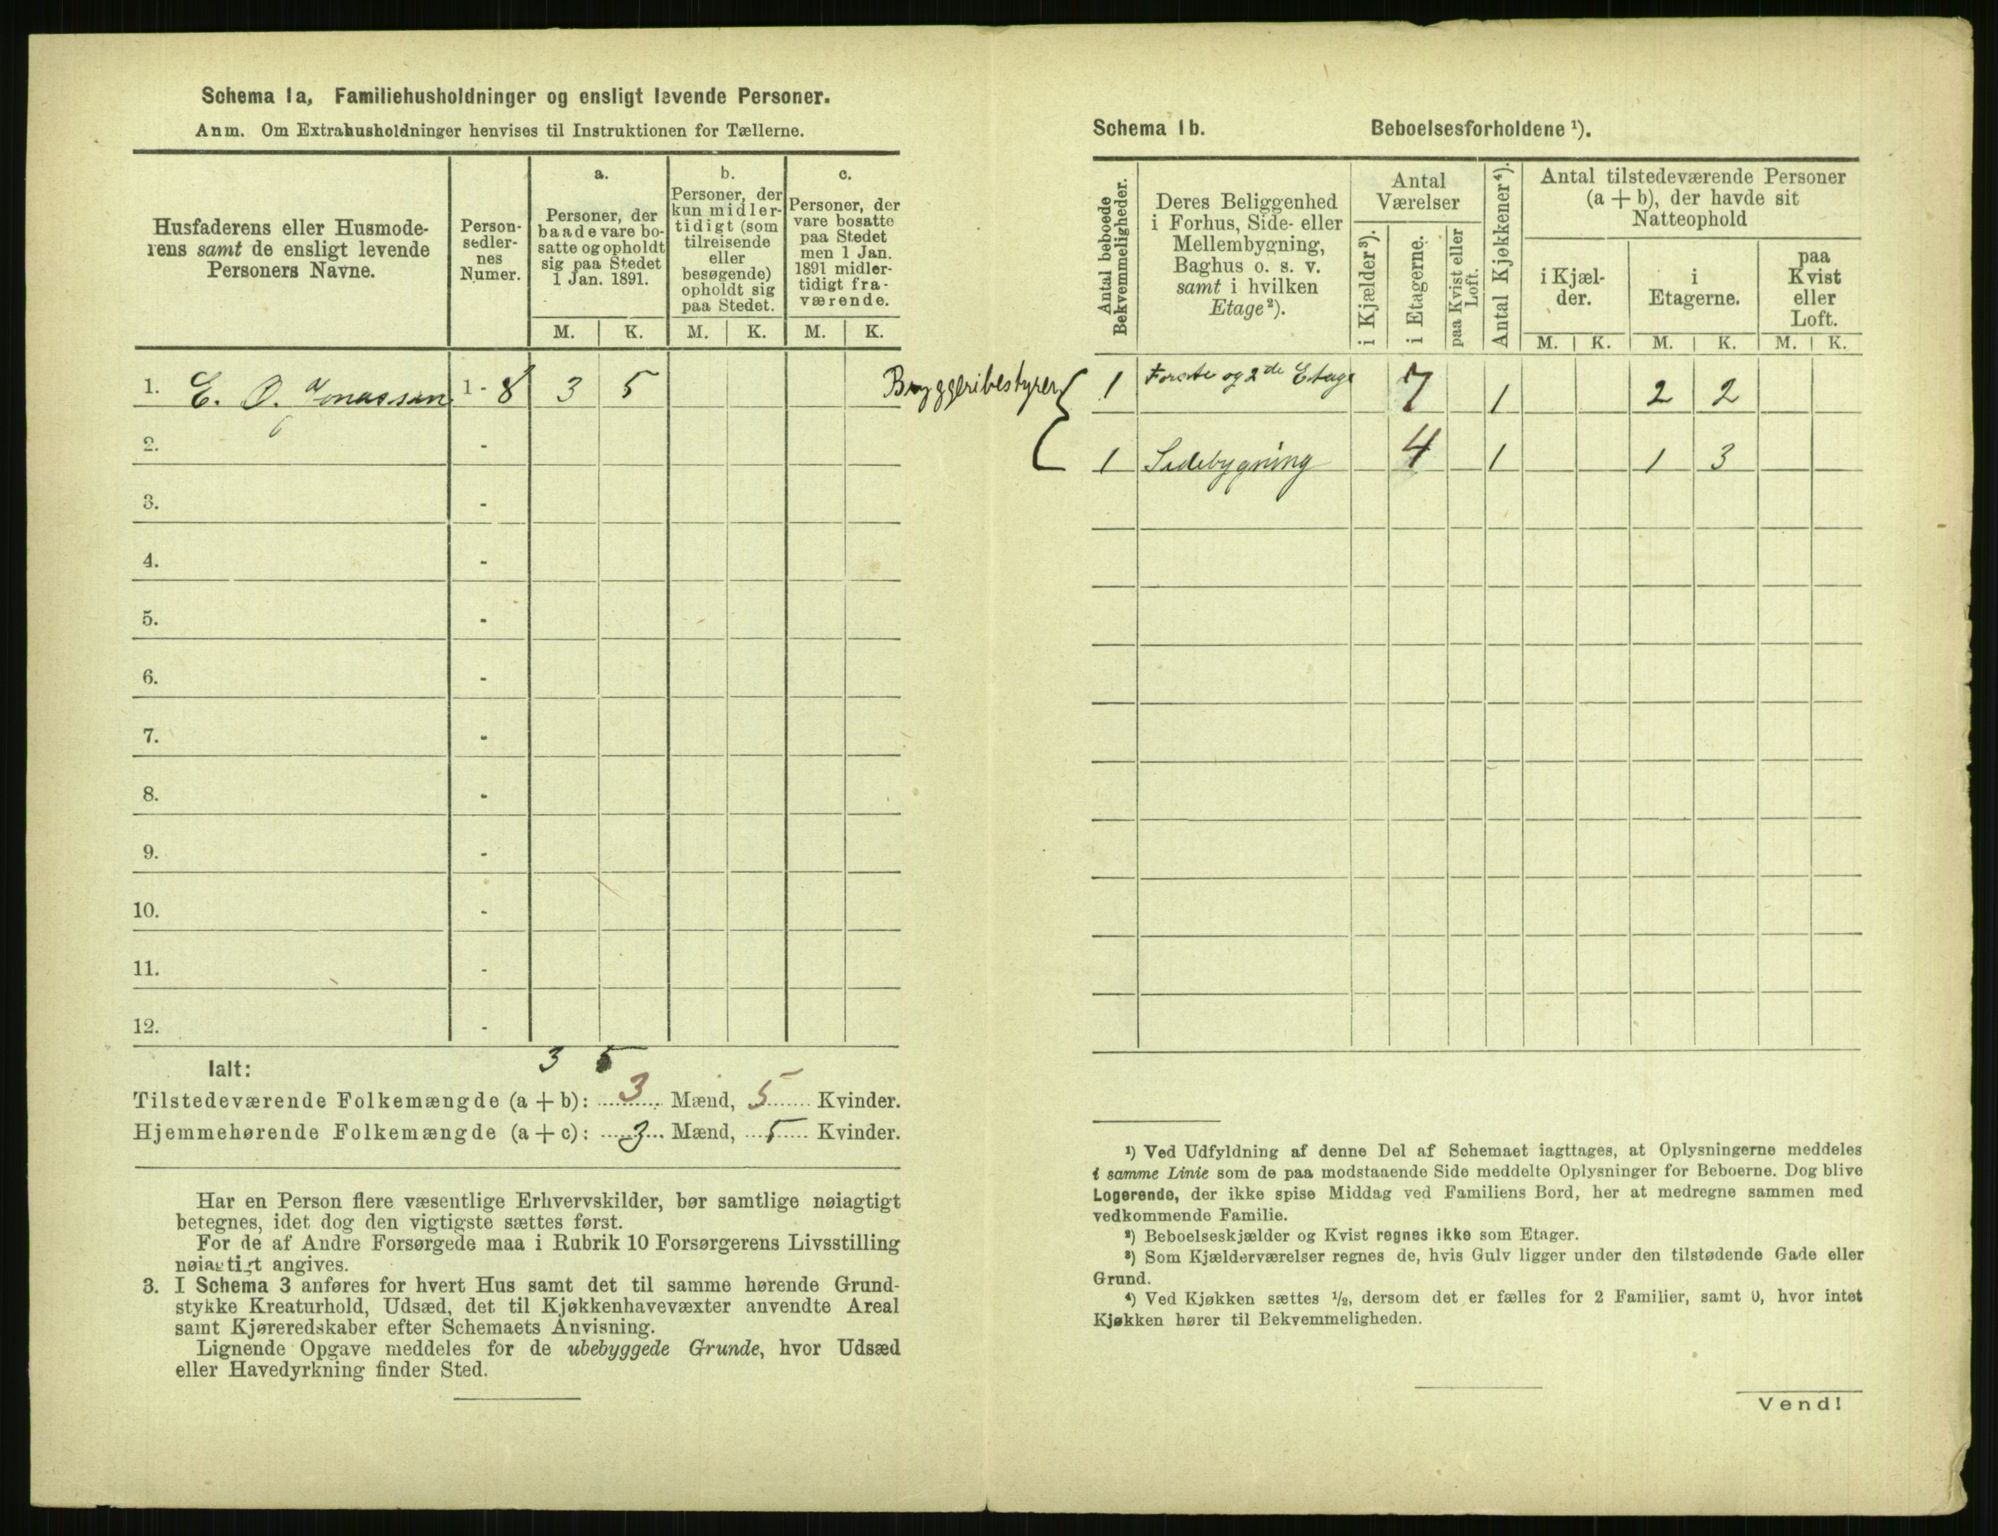 Schema 1a, Familiehusholdninger og ensligt levende Personer.
Anm. Om Extrahusholdninger henvises til Instruktionen for Tællerne.
Husfaderens eller Husmode-
rens samt de ensligt levende
Personers Navne.
Person-
sedler-
nes
Numer.
a.
Personer, der
baade vare bo-
satte og opholdt
sig paa Stedet
1 Jan. 1891.
b.
Personer, der
kun midler-
tidigt (som
tilreisende
eller
besøgende)
opholdt sig
paa Stedet.
c.
Personer, der
vare bosatte
paa Stedet
men 1 Jan.
1891 midler-
tidigt fra-
værende.
M. K. M. K. M. K.
1. E. O. Jonassen 1 - 8 3 5
2. -
3. -
4. -
5. -
6. -
7. -
8. -
9. -
10. -
11. -
12. -
Ialt: 3 5
Tilstedeværende Folkemængde (a + b): 3 Mænd, 5 Kvinder.
Hjemmehørende Folkemængde (a + c): 3 Mænd, 5 Kvinder.
Har en Person flere væsentlige Erhvervskilder, bør samtlige nøiagtigt
betegnes, idet dog den vigtigste sættes først.
For de af Andre Forsørgede maa i Rubrik 10 Forsørgerens Livsstilling
nøiagtigt angives.
3. I Schema 3 anføres for hvert Hus samt det til samme hørende Grund-
stykke Kreaturhold, Udsæd, det til Kjøkkenhavevæxter anvendte Areal
samt Kjøreredskaber efter Schemaets Anvisning.
Lignende Opgave meddeles for de ubebyggede Grunde, hvor Udsæd
eller Havedyrkning finder Sted.
Schema 1b. Beboelsesforholdene ¹).
Antal beboede
Bekvemmeligheder.
Deres Beliggenhed
i Forhus, Side- eller
Mellembygning,
Baghus o. s. v.
samt i hvilken
Etage ²).
Antal
Værelser
i Kjælder ³).
i Etagerne.
paa Kvist eller
Loft.
Antal Kjøkkener ⁴).
Antal tilstedeværende Personer
(a + b), der havde sit
Natteophold
i Kjæl-
der.
i
Etagerne.
paa
Kvist
eller
Loft.
M. K. M. K. M. K.
Bryggeribestyrer
1 Første og 2de Etage 7 1 2 2
1 Sidebygning 4 1 1 3
¹) Ved Udfyldning af denne Del af Schemaet iagttages, at Oplysningerne meddeles
i samme Linie som de paa modstaaende Side meddelte Oplysninger for Beboerne. Dog blive
Logerende, der ikke spise Middag ved Familiens Bord, her at medregne sammen med
vedkommende Familie.
²) Beboelseskjælder og Kvist regnes ikke som Etager.
³) Som Kjælderværelser regnes de, hvis Gulv ligger under den tilstødende Gade eller
Grund.
⁴) Ved Kjøkken sættes ½, dersom det er fælles for 2 Familier, samt 0, hvor intet
Kjøkken hører til Bekvemmeligheden.
Vend!